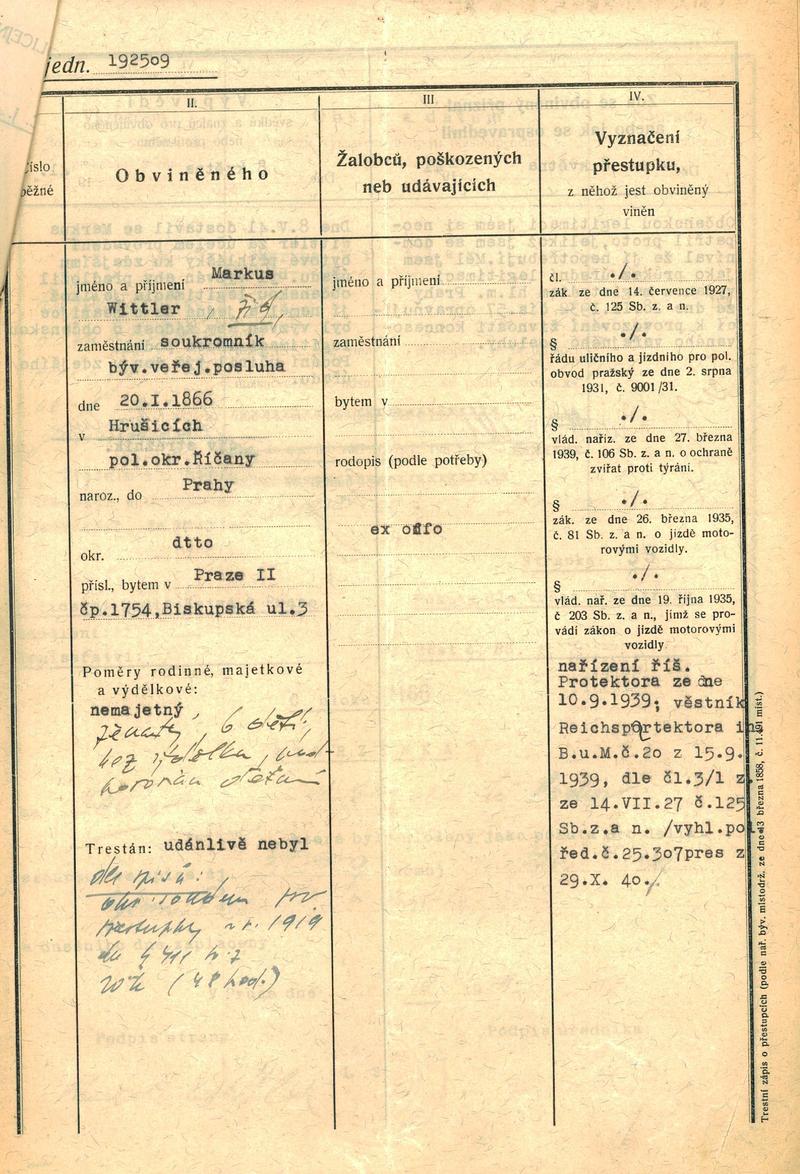 jedn. 1925o9
íslo
ěžné
II.
Obviněného
III
Žalobců, poškozených
neb udávajících
IV.
Vyznačení
přestupku,
z něhož jest obviněný
viněn
jméno a příjmení Markus
Wittler, žid,
zaměstnání soukromník
býv.veřej.posluha
dne 20.I.1866
v Hrušicích
pol.okr.Říčany
naroz., do Prahy
okr. dtto
přísl., bytem v Praze II
čp.1754,Biskupská ul.3
Poměry rodinné, majetkové
a výdělkové:
nemajetný,
ženatý, 6 dětí,
bez výdělku,
Trestán: udánlivě nebyl
dle spisů:
přestupky r. 1919
dle § 411
(48 hod.)
jméno a příjmení
zaměstnání
bytem v
rodopis (podle potřeby)
ex offo
čl. ./.
zák ze dne 14. července 1927,
č. 125 Sb. z. a n.
§ ./.
řádu uličního a jízdního pro pol.
obvod pražský ze dne 2. srpna
1931, č. 9001/31.
§ ./.
vlád. naříz. ze dne 27. března
1939, č. 106 Sb. z. a n. o ochraně
zvířat proti týrání.
§ ./.
zák. ze dne 26. března 1935,
č. 81 Sb. z. a n. o jízdě moto-
rovými vozidly.
§ ./.
vlád. nař. ze dne 19. října 1935,
č 203 Sb. z. a n., jímž se pro-
vádí zákon o jízdě motorovými
vozidly
nařízení říš.
Protektora ze dne
10.9.1939; věstník
Reichsprtektora i
B.u.M.č.2o z 15.9.
1939, dle čl.3/1 z
ze 14.VII.27 č.125
Sb.z.a n. /vyhl.po
řed.č.25.3o7pres z
29.X. 4o./
Trestní zápis o přestupcích (podle nař. býv. místodrž. ze dne 3 března 1858, č. 11. míst.)